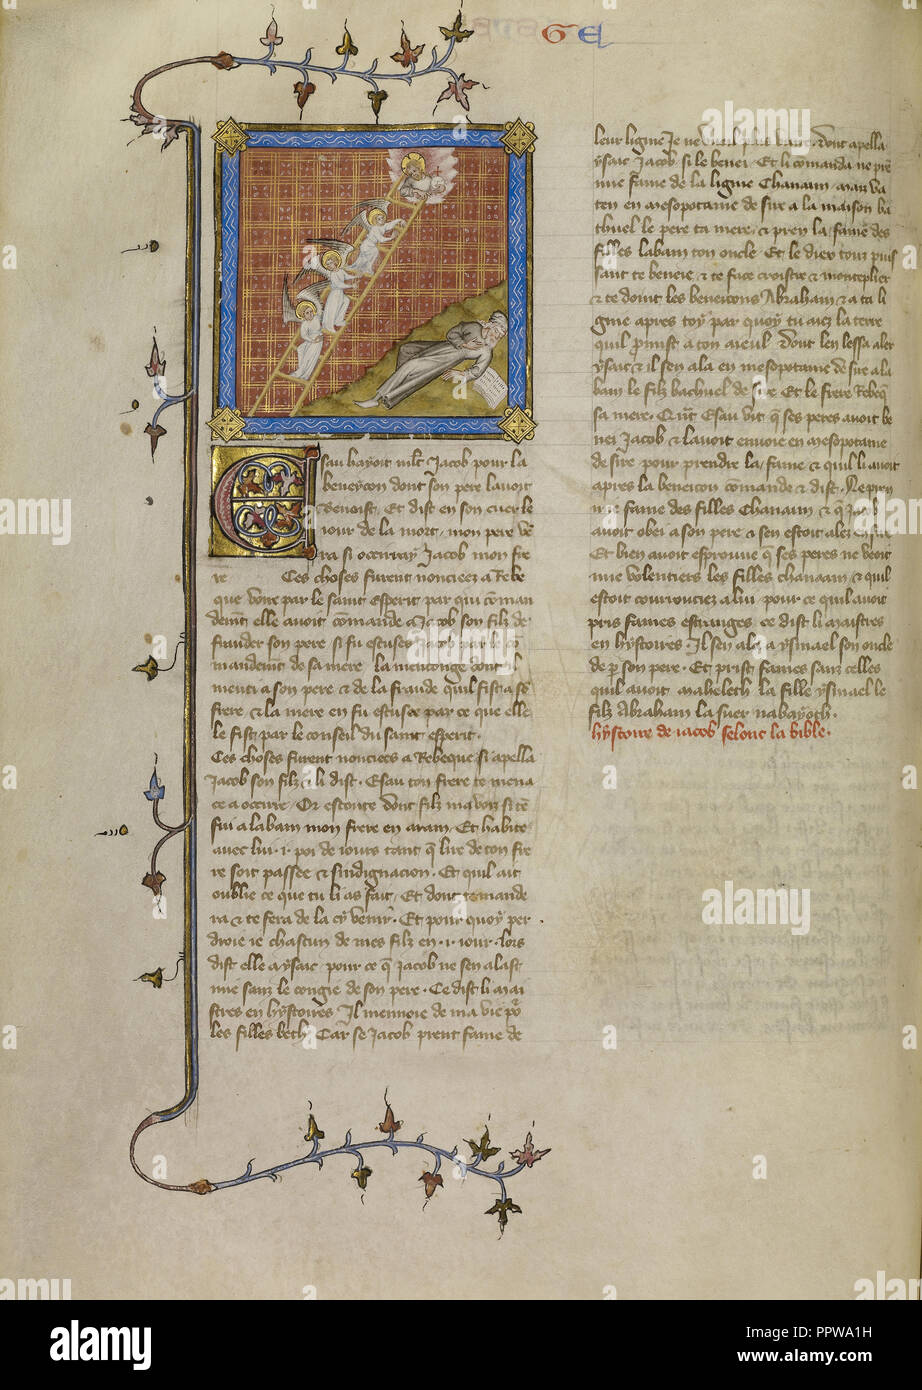 GE
sau hayoit mlt Jacob pour la
beneycon dont son pere lavoit
benoist. Et dist en son cuer le
iour de la mort mon pere ve
ra si occirray Jacob mon fre
re Ces choses furent noncieez a Rebe
que voire par le saint esperit par qui coman
dement elle avoit comande a Jacob son filz de
frauder son pere si fu escusee Jacob par le co
mandement de sa mere la menconge dont il
menti a son pere & de la fraude quil fist a se
frere & la mere en fu escusee par ce que elle
le fist par le conseil du saint esperit.
Ces choses furent noncieez a Rebeque si apella
Jacob son filz & li dist. Esau ton frere te mena
ce a occirre Or escoute dont filz ma voiz si te
fui a labam mon frere en aram. Et habite
avec lui .i. poi de iours tant q lire de ton fre
re soit passee & sindignacion. Et quil ait
oublie ce que tu li as fait. Et dont te mande
ra & te fera de la cy venir. Et pour quoy per
droie ie chascun de mes filz en .i. iour. lors
dist elle a ysaac pour ce q Jacob ne sen alast
mie sanz le congie de son pere. Ce dist li mai
stres en hystoires Il mennoie de ma vie po
les filles heth. Car se Jacob prent fame de
leur ligne Je ne vueil plus vivre. dont apella
ysaac Jacob si le benei. Et li comanda ne pre
mie fame de la ligne Chanaan. maiz va
ten en mesopotame de sire a la maison ba
thuel le pere ta mere. & pren la fame des
filles labam ton oncle. Et le dieu touz puis
sant te beneie & te face croistre & monteplier
& te doint les beneicons Abraham & a ta li
gnie apres toy par quoy tu aiez la terre
quil promist a ton aieul. dont len lessa aler
ysaac & il sen ala en mesopotame de sire a la
bam le filz bathuel de sire Et le frere Rebeq
sa mere. Qnt Esau vit q ses peres avoit be
nei Jacob & lavoit envoie en mesopotame
de sire pour prendre la fame & quil li avoit
apres la beneicon comande & dist. Ne pren
mie fame des filles Chanaan & q Jacob
avoit obei a son pere & sen estoit alez en sire
Et bien avoit esprouve q ses peres ne veoit
mie volentiers les filles chanaan & quil
estoit courrouciez a lui pour ce quil avoit
pris fames estranges ce dist li maistres
en hystoires. Il sen ala a ysmael son oncle
de p son pere. Et prist fames sanz celles
quil avoit mabeleth la fille ysmael le
filz Abraham la suer nabayoth.
hystoire de iacob selonc la bible.
alamy
Image ID: PPWA1H
www.alamy.com